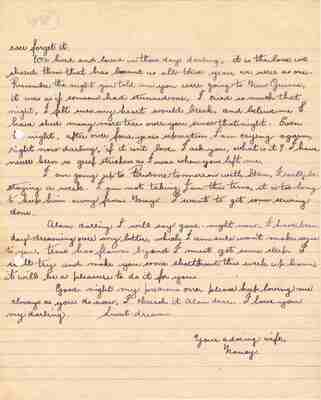 ever forget it.
We lived and loved in those days darling, it is the love we
shared then that has bound us all these years we were as one.
Remember the night you told me you were going to New Guinea,
it was as if someone had stunned me, I cried so much that
night, I felt as my heart would break and believe me I
have shed many more tears over you since that night. Even
night, after over four years separation I am crying again,
right now darling, if it isn't love I ask you, what is it? I have
never been so grief stricken as I was when you left me.
I am going up to Brisbane tomorrow with Mum, I will be
staying a week. I am not taking Ian this time, it is too long
to keep him away from George. I want to get some sewing
done.
Alan darling I will say good-night now, I have been
day-dreaming over my letter, which I am sure wont make sense
to you. Time has flown by and I must get some sleep. I
will try and make you some shortbread this week up home,
it will be a pleasure to do it for you.
Good night my precious one please keep loving me
always as you do now, I cherish it Alan dear. I love you
my darling. Sweet dreams.
Your adoring wife,
Nancy.